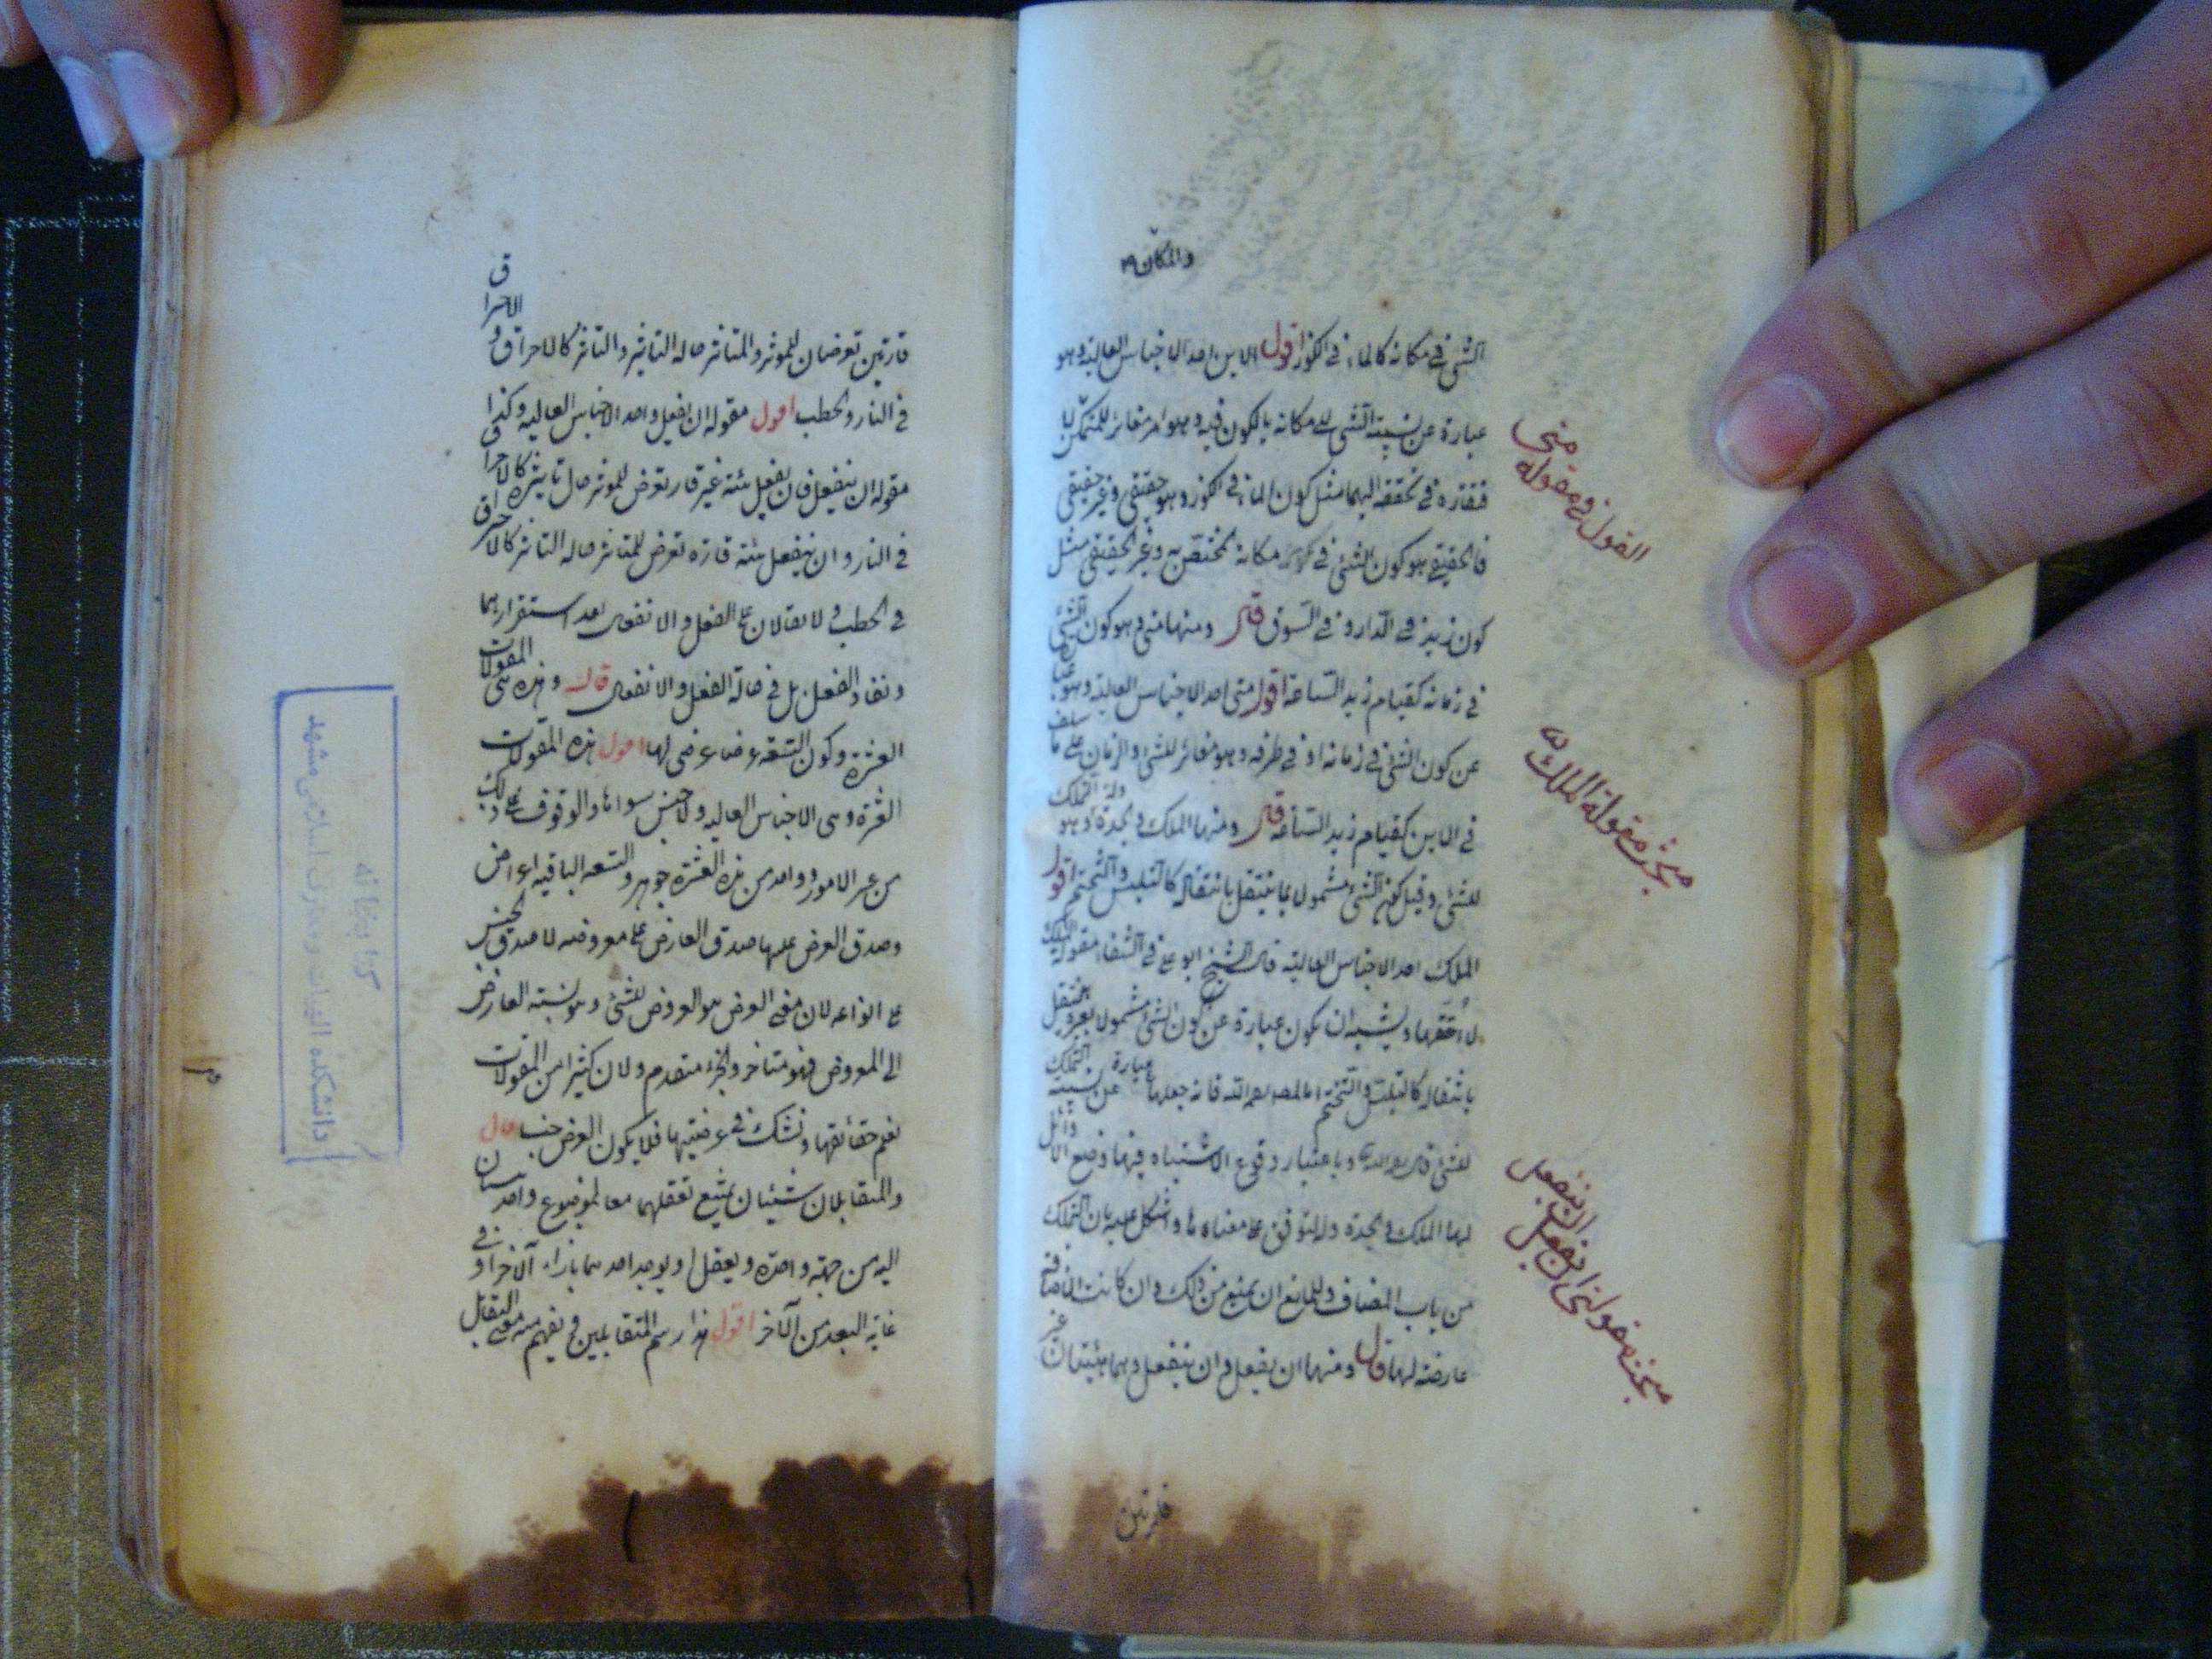 والمكان
الشئ في مكانه كالماء في الكوز اقول الاين احد الاجناس العالية وهو
عبارة عن نسبة الشئ الى مكانه بالكون فيه وهو امر مغاير للمتمكن لا
فتقاره في تحققه اليهما مثل كون الماء في الكوز وهو حقيقي وغير حقيقي
فالحقيقي هو كون الشئ في مكانه المختص به وغير الحقيقي مثل
كون زيد في الدار وفي السوق قال ومنها متى وهو كون الشئ
في زمانه كقيام زيد الساعة اقول متى احد الاجناس العالية وهو عبا
عن كون الشئ في زمانه او في طرفه وهو مغاير للشئ والزمان على ما سلف
في الاين كقيام زيد الساعة قال ومنها الملك والجدة وله التملك وهو
للشئ وقيل كون الشئ مشمولا بما ينتقل بانتقاله كالتلبس والتختم اقول
الملك احد الاجناس العالية قال الشيخ ابو علي في الشفاء مقولة الملك
لا احققها ويشبه ان يكون عبارة عن كون الشئ مشمولا بغيره ينتقل
بانتقاله كالتلبس والتختم اما المصنف رحمه الله فانه جعلها عبارة عن نسبة التملك
للشئ قال رحمه الله وباعتبار وقوع الاشتباه فيها وضع الاوائل
لها الملك والجدة وله لتوقف على معناه ما واشكل عليه بان التملك
من باب المضاف وللمانع ان يمنع من ذلك وان كانت الاضافة
عارضة لها قال ومنها ان يفعل وان ينفعل وهما هيئتان غير
قارتين
القول في مقولة متى
مبحث مقولة الملك له
مبحث مقولتي ان يفعل ان ينفعل
قارتين تعرضان للموثر والمتاثر حاله التاثير والتاثر كالاحراق و الاحراق
في النار والحطب اقول مقولة ان يفعل واحد الاجناس العاليه وكذا
مقولة ان ينفعل فان يفعل هيئة غير قار تعرض للموثر حال تاثيره كالاحراق
في النار وان ينفعل هيئة قاره تعرض للمتاثر حاله التاثر كالاحتراق
في الحطب ولا يقالان على الفعل والانفعال بعد استقرارهما
ونفاد الفعل بل في حالة الفعل والانفعال قال وهذه هي المقولات
العشرة وكون التسعة عرضا عرضي لها اقول هذه المقولات
العشرة وهي الاجناس العاليه ولا جنس سواها والوقوف على ذلك
من عسر الامور وواحد من هذه العشرة جوهر والتسعه الباقيه اعراض
وصدق العرض عليها صدق العارض على معروضه لا صدق الجنس
على انواعه لان معنى العرض هو العروض للشئ وهو نسبة العارض
الى المعروض فهو متاخر والجزء متقدم ولان كثيرا من المقولات
نعلم حقائقها ونشك في عرضيتها فلا يكون العرض جنسا قال
والمتقابلان شيئان يمتنع تعقلهما معا لموضوع واحد
اليه من جهة واحدة ويعقل او يوجد احدهما بازاء الآخر او في
غاية البعد من الآخر اقول هذا رسم المتقابلين ويفهم منه معنى التقابل
کتابخانه
دانشکده الهیات و معارف اسلامی مشهد